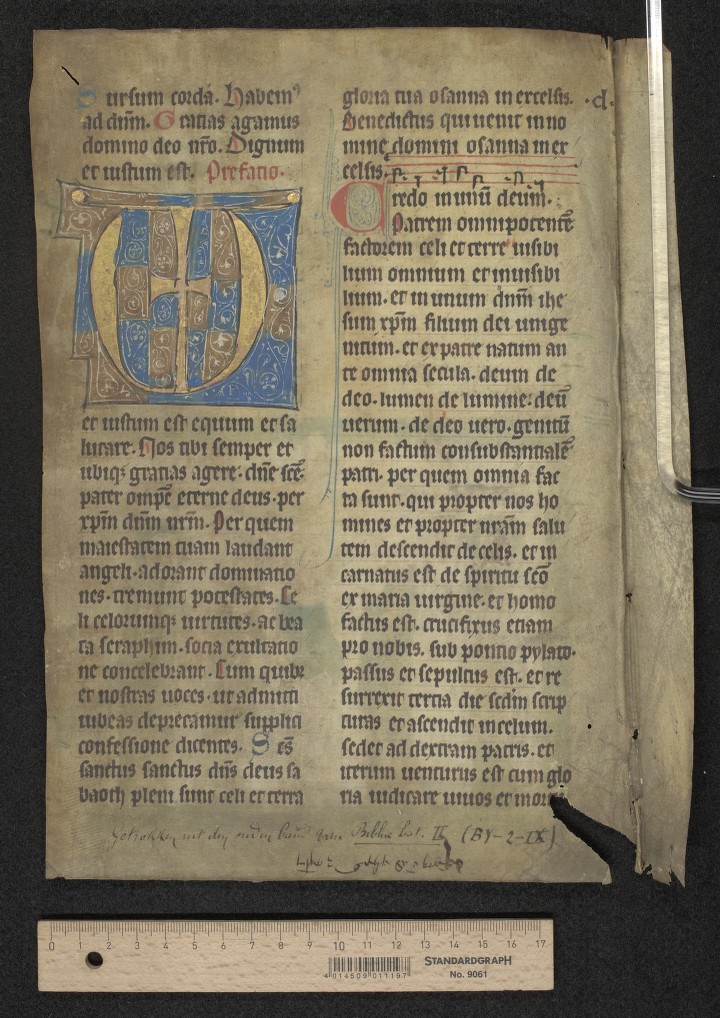 Sursum corda. Habem⁹
ad dn̄m. Gratias agamus
domino deo nr̄o. Dignum
et iustum est. Prefatio.
et iustum est equum et sa
lutare. Nos tibi semper et
ubiqꝫ gratias agere. dn̄e sc̄e.
pater omp̄e eterne deus. per
xp̄m dn̄m nr̄m. Per quem
maiestatem tuam laudant
angeli. adorant dominatio
nes. tremunt potestates. Ce
li celorumqꝫ uirtutes. ac bea
ta seraphim. socia exultatio
ne concelebrant. Cum quibꝫ
et nostras uoces. ut admitti
iubeas deprecamur supplici
confessione dicentes. Sc̄s
sanctus sanctus dn̄s deus sa
baoth pleni sunt celi et terra
gloria tua osanna in excelsis. ·d.
Benedictus qui uenit in no
mine domini osanna in ex
celsis.
Credo in unū deum.
Patrem omnipotentē
factorem celi et terre uisibi
lium omnium et inuisibi
lium. et in unum dn̄m ihe
sum xp̄m filium dei unige
nitum. et ex patre natum an
te omnia secula. deum de
deo. lumen de lumine. deū
uerum. de deo uero. genitū
non factum consubstantialē
patri. per quem omnia fac
ta sunt. qui propter nos ho
mines et propter nr̄am salu
tem descendit de celis. et in
carnatus est de spiritu sc̄o
ex maria uirgine. et homo
factus est. crucifixus etiam
pro nobis. sub pontio pylato.
passus et sepultus est. et re
surrexit tertia die scd̄m scrip
turas et ascendit in celum.
sedet ad dextram patris. et
iterum uenturus est cum glo
ria iudicare uiuos et mortu
Biblia lat. IX (BY-2-IX)
0 1 2 3 4 5 6 7 8 9 10 11 12 13 14 15 16 17
4 014509 011197
STANDARDGRAPH
No. 9061